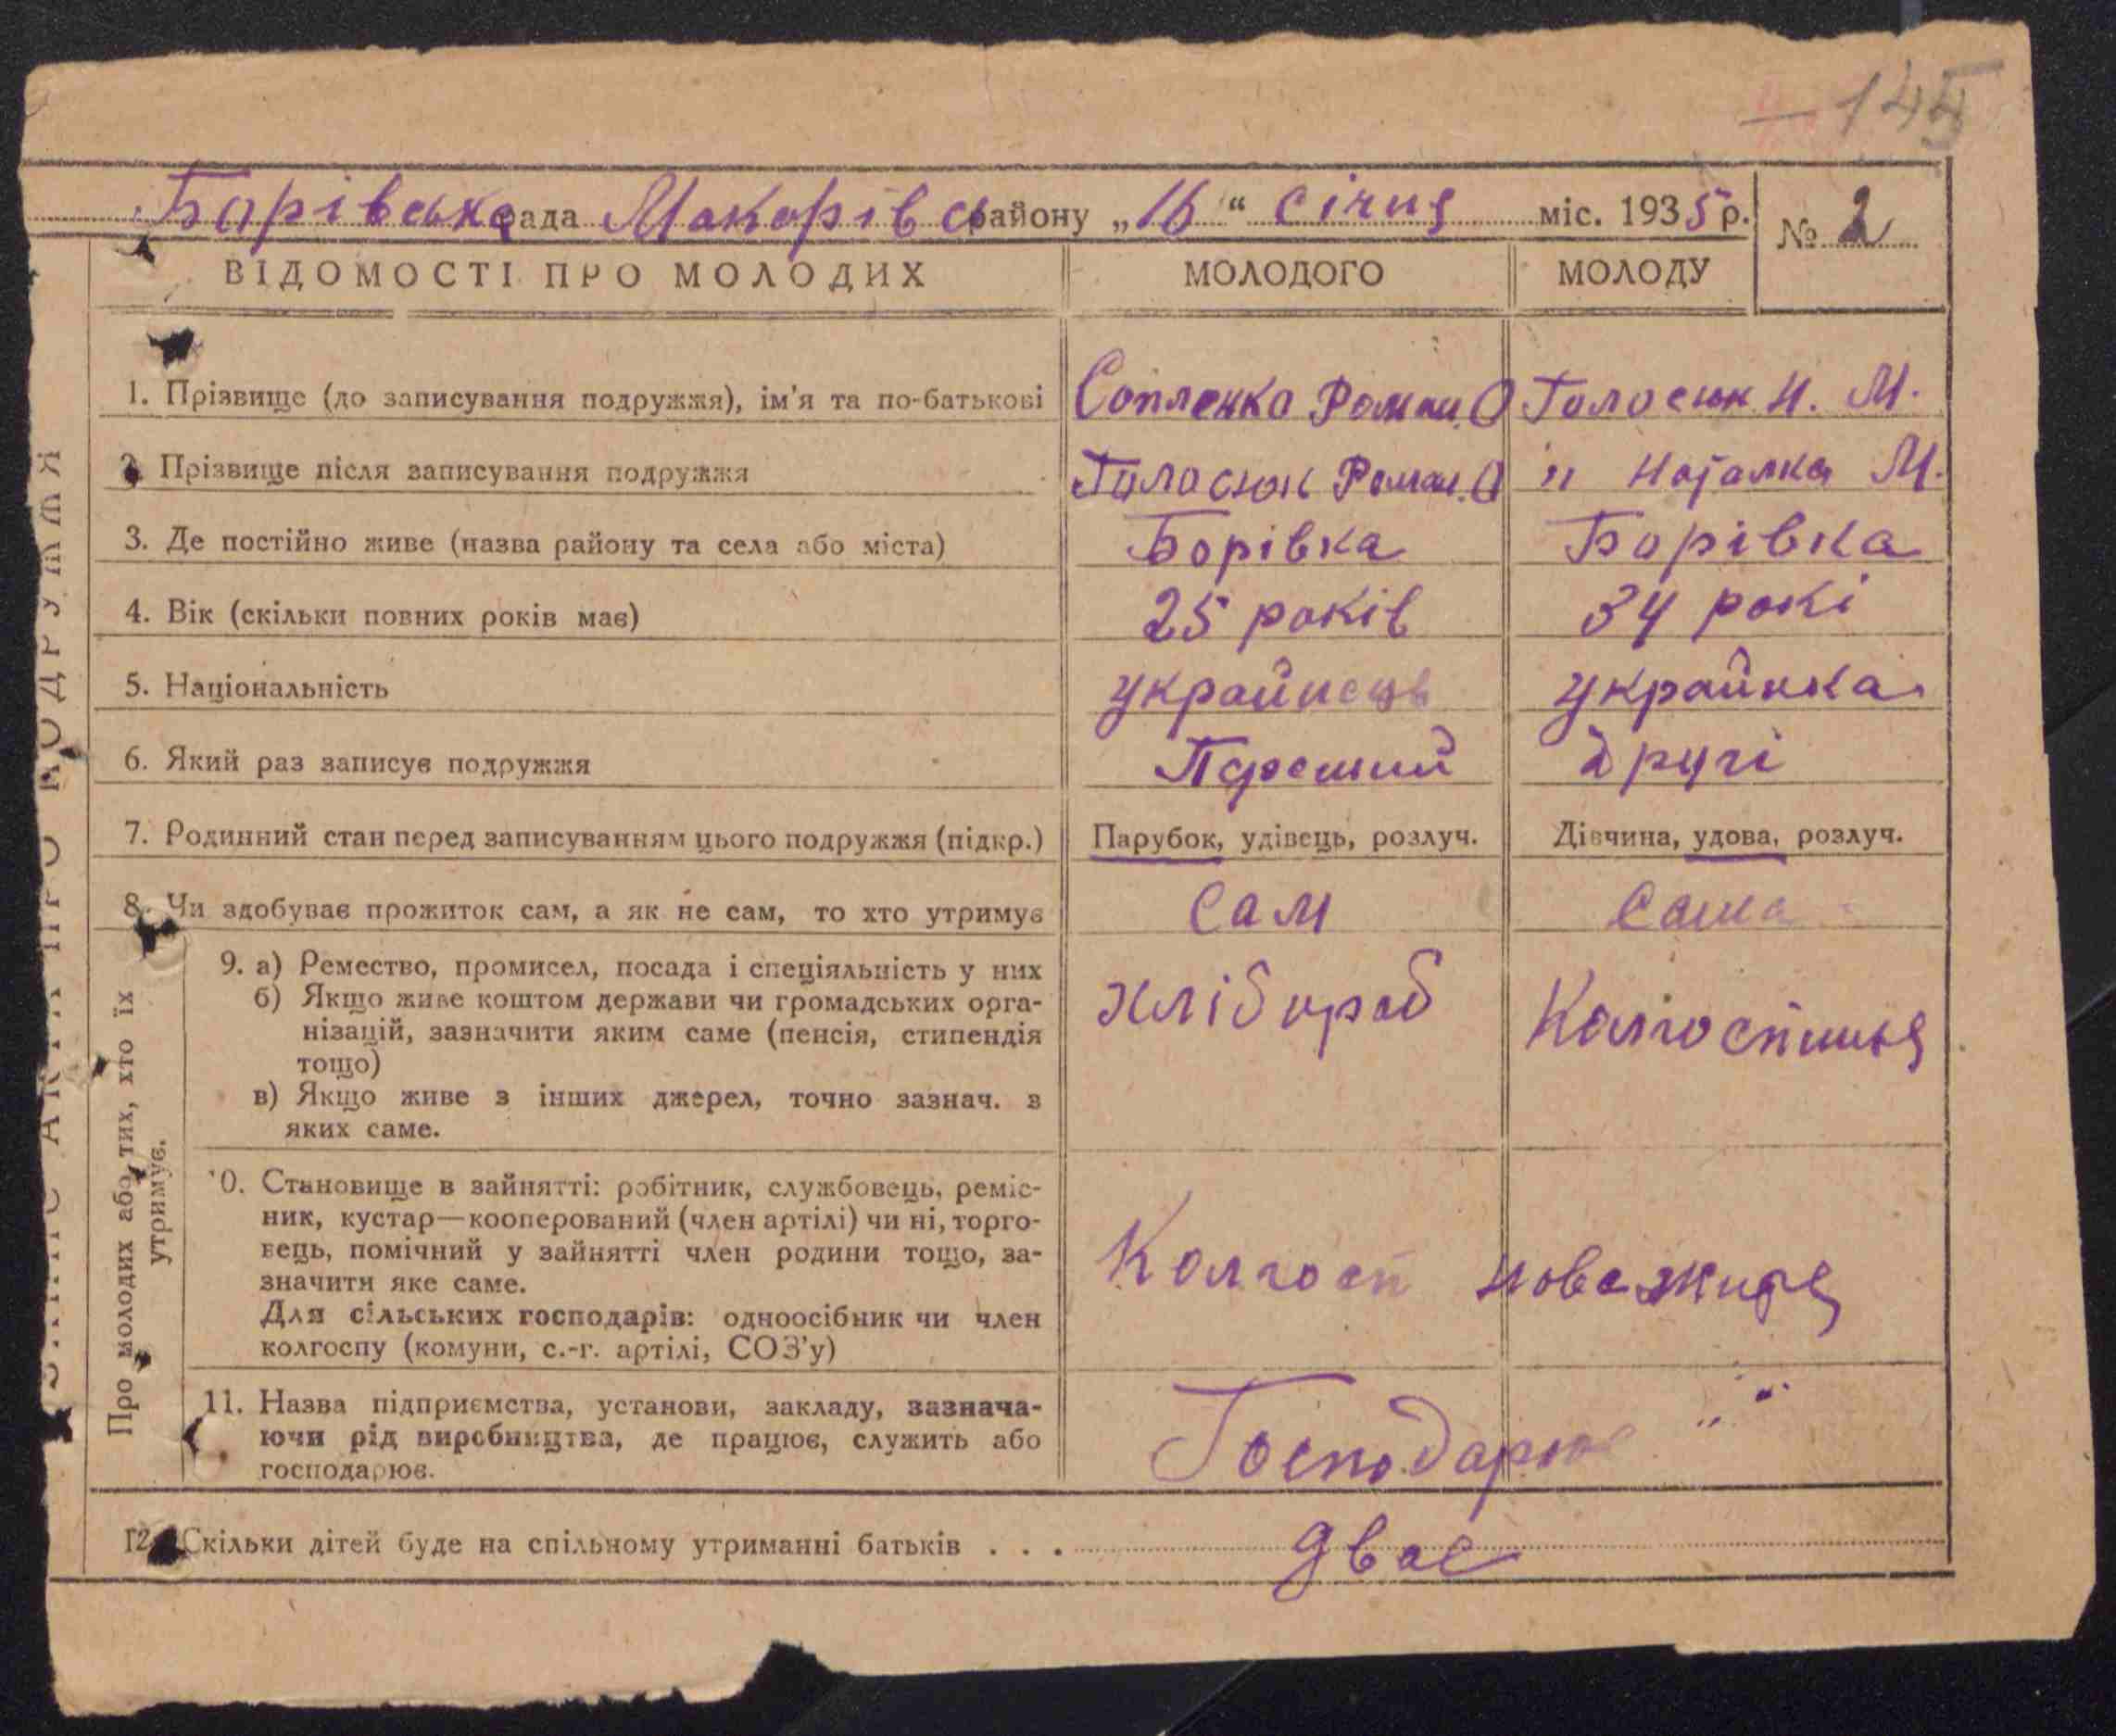 145
Борівська рада Макорівськ району „16“ січня міс. 1935 р. № 2
ВІДОМОСТІ ПРО МОЛОДИХ МОЛОДОГО МОЛОДУ
1. Прізвище (до записування подружжя), ім'я та по-батькові Роман О Голосюк Н. М.
2. Прізвище після записування подружжя Голосюк Роман. О " Наталка М.
3. Де постійно живе (назва району та села або міста) Борівка Борівка
4. Вік (скільки повних років має) 25 років 34 рокі
5. Національність українець українка
6. Який раз записує подружжя другі
7. Родинний стан перед записуванням цього подружжя (підкр.) Парубок, удівець, розлуч. Дівчина, удова, розлуч.
8. Чи здобуває прожиток сам, а як не сам, то хто утримує сам сама
9. а) Ремество, промисел, посада і спеціяльність у них
б) Якщо живе коштом держави чи громадських орга- хлібороб
нізацій, зазначити яким саме (пенсія, стипендія Колгоспниця
тощо)
в) Якщо живе з інших джерел, точно зазнач. з
яких саме.
10. Становище в зайнятті: робітник, службовець, реміс-
ник, кустар—кооперований (член артілі) чи ні, торго-
вець, помічний у зайнятті член родини тощо, за- Колгосп нове життя
значити яке саме.
Для сільських господарів: одноосібник чи член
колгоспу (комуни, с.-г. артілі, СОЗ'у)
11. Назва підприємства, установи, закладу, зазнача-
ючи рід виробництва, де працює, служить або Господарює " "
господарює.
12. Скільки дітей буде на спільному утриманні батьків . . . двоє
Про молодих або тих, хто їх
утримує.
ЗАПИС АКТА ПРО ПОДРУЖЖЯ